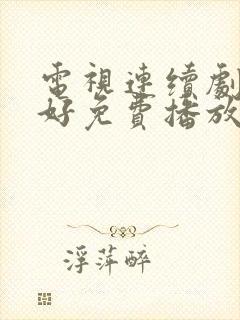 電視連續劇
好免費播放
浮萍醉